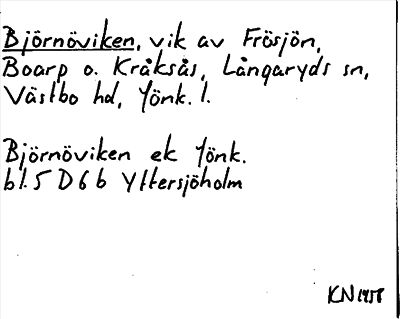 Björnöviken, vik av Frösjön,
Boarp o. Kråksås, Långaryds sn,
Västbo hd, Jönk. l.
Björnöviken ek Jönk.
bl. 5 D 6 b Yttersjöholm
KN 1958